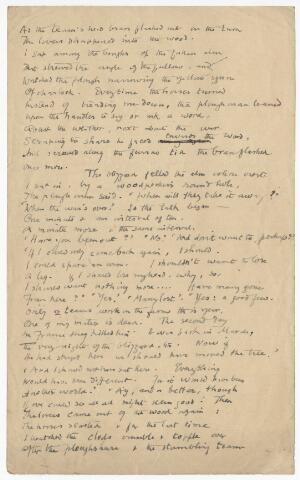 As the team's head brass flashed out on the turn
The lovers disappeared into the wood.
I sat among the boughs of the fallen elm
That strewed the angle of the fallow, and
Watched the plough narrowing the yellow square
Of charlock. Every time the horses turned
Instead of treading me down, the ploughman leaned
Upon the handles to say or ask a word,
About the weather, next about the war.
Scraping the share he faced towards the wood,
And screwed along the furrow till the brass flashed
Once more.
The blizzard felled the elm whose crest
I sat in, by a woodpecker's round hole,
The ploughman said. "When will they take it away?"
"When the war's over." So the talk began –
One minute & an interval of ten,
A minute more & the same interval.
"Have you been out?" "No." "And don't want to, perhaps?"
"If I could only come back again, I should.
I could spare an arm. I shouldn't want to lose
A leg. If I should lose my head, why, so,
I should want nothing more.... Have many gone
From here?" "Yes." "Many lost?" "Yes: a good few.
Only 2 teams work on the farm this year.
One of my mates is dead. The second day
In France they killed him. It was back in March,
The very night of the blizzard, too. Now if
He had stayed here we should have moved the tree."
"And I should not have sat here. Everything
Would have been different. For it would have been
Another world." "Ay, and a better, though
If we could see all all might seem good." Then
The lovers came out of the wood again:
The horses started & for the last time
I watched the clods crumble & topple over
After the ploughshare & the stumbling team.